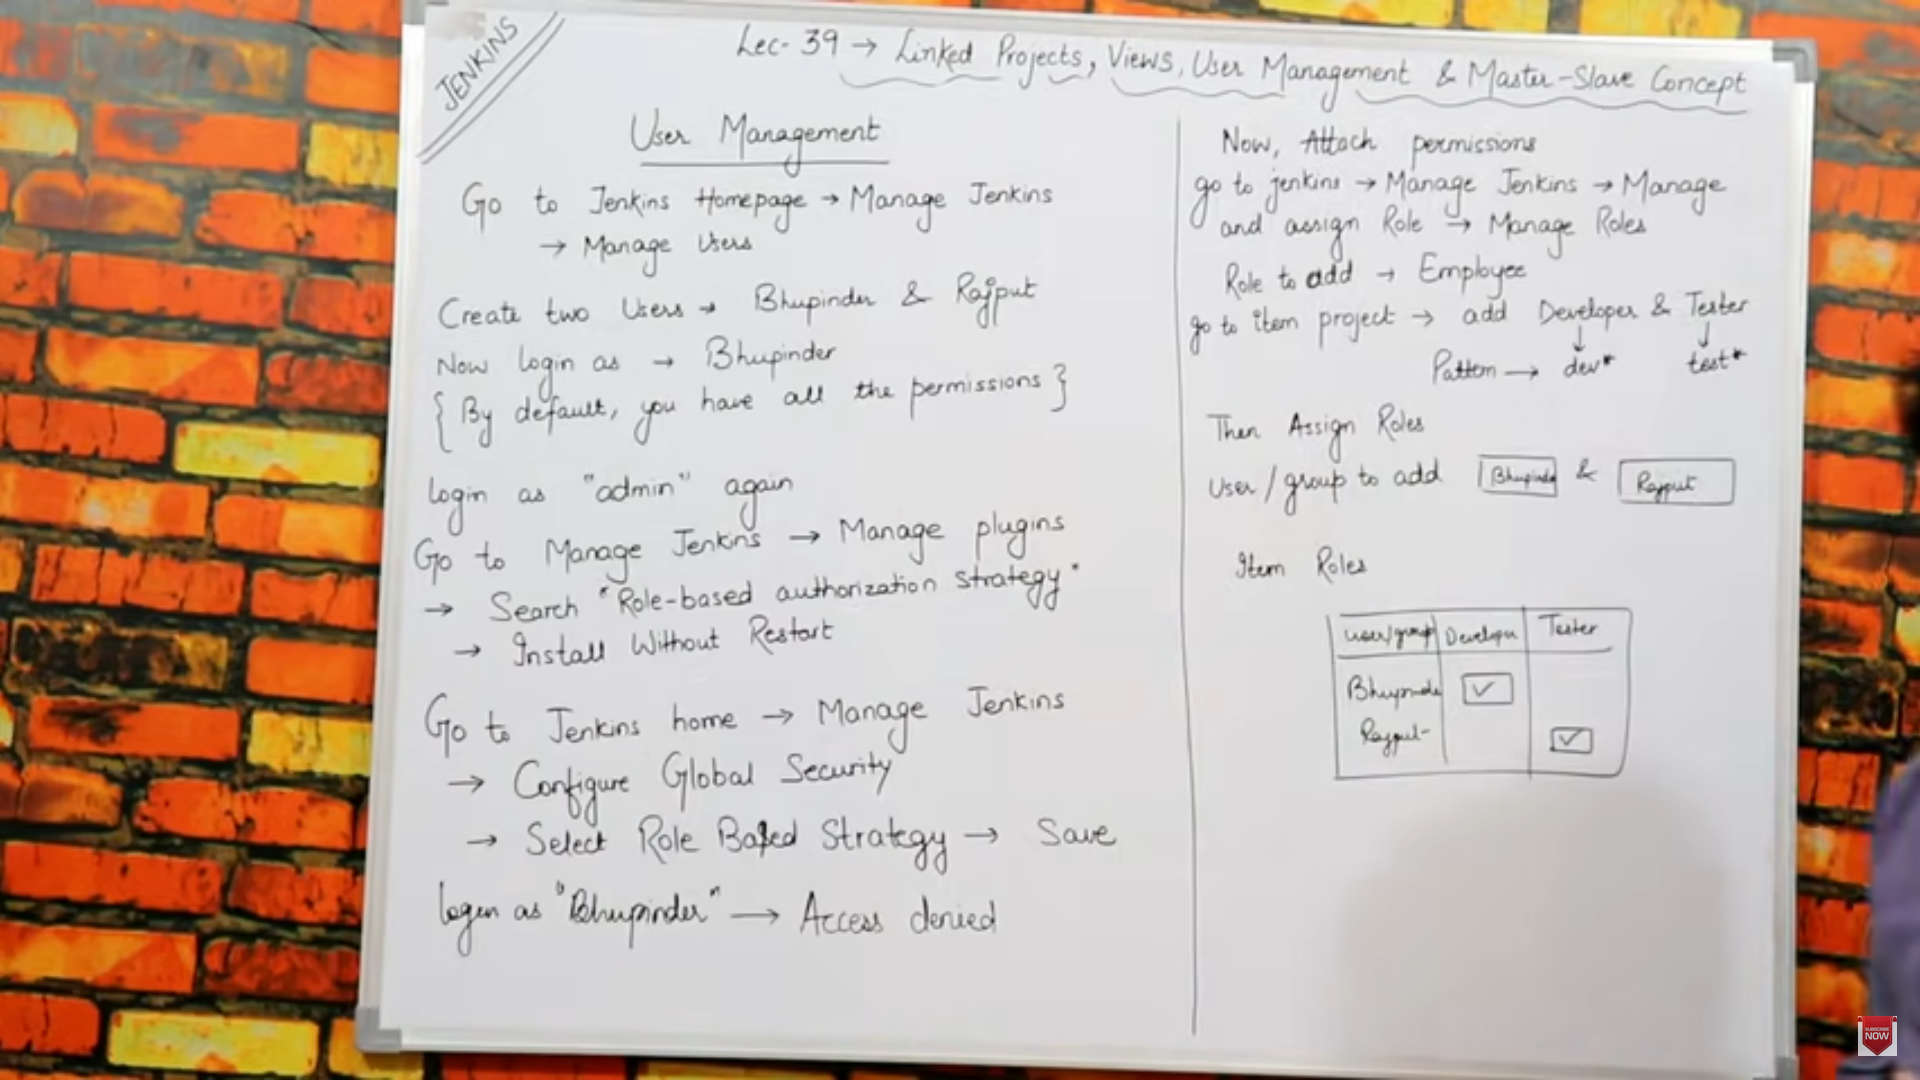 JENKINS
Lec-39 → Linked Projects, Views, User Management & Master-Slave Concept
User Management
Go to Jenkins Homepage → Manage Jenkins
→ Manage Users
Create two Users → Bhupinder & Rajput
Now login as → Bhupinder
{ By default, you have all the permissions }
login as "admin" again
Go to Manage Jenkins → Manage plugins
→ Search "Role-based authorization strategy"
→ Install Without Restart
Go to Jenkins home → Manage Jenkins
→ Configure Global Security
→ Select Role Based Strategy → Save
login as "Bhupinder" → Access denied
Now, Attach permissions
go to jenkins → Manage Jenkins → Manage
and assign Role → Manage Roles
Role to add → Employee
go to item project → add Developer & Tester
↓ ↓
Pattern → dev* test*
Then Assign Roles
User/group to add Bhupinder & Rajput
Item Roles
user/group Developer Tester
Bhupinder ✓
Rajput ✓
SUBSCRIBE
NOW